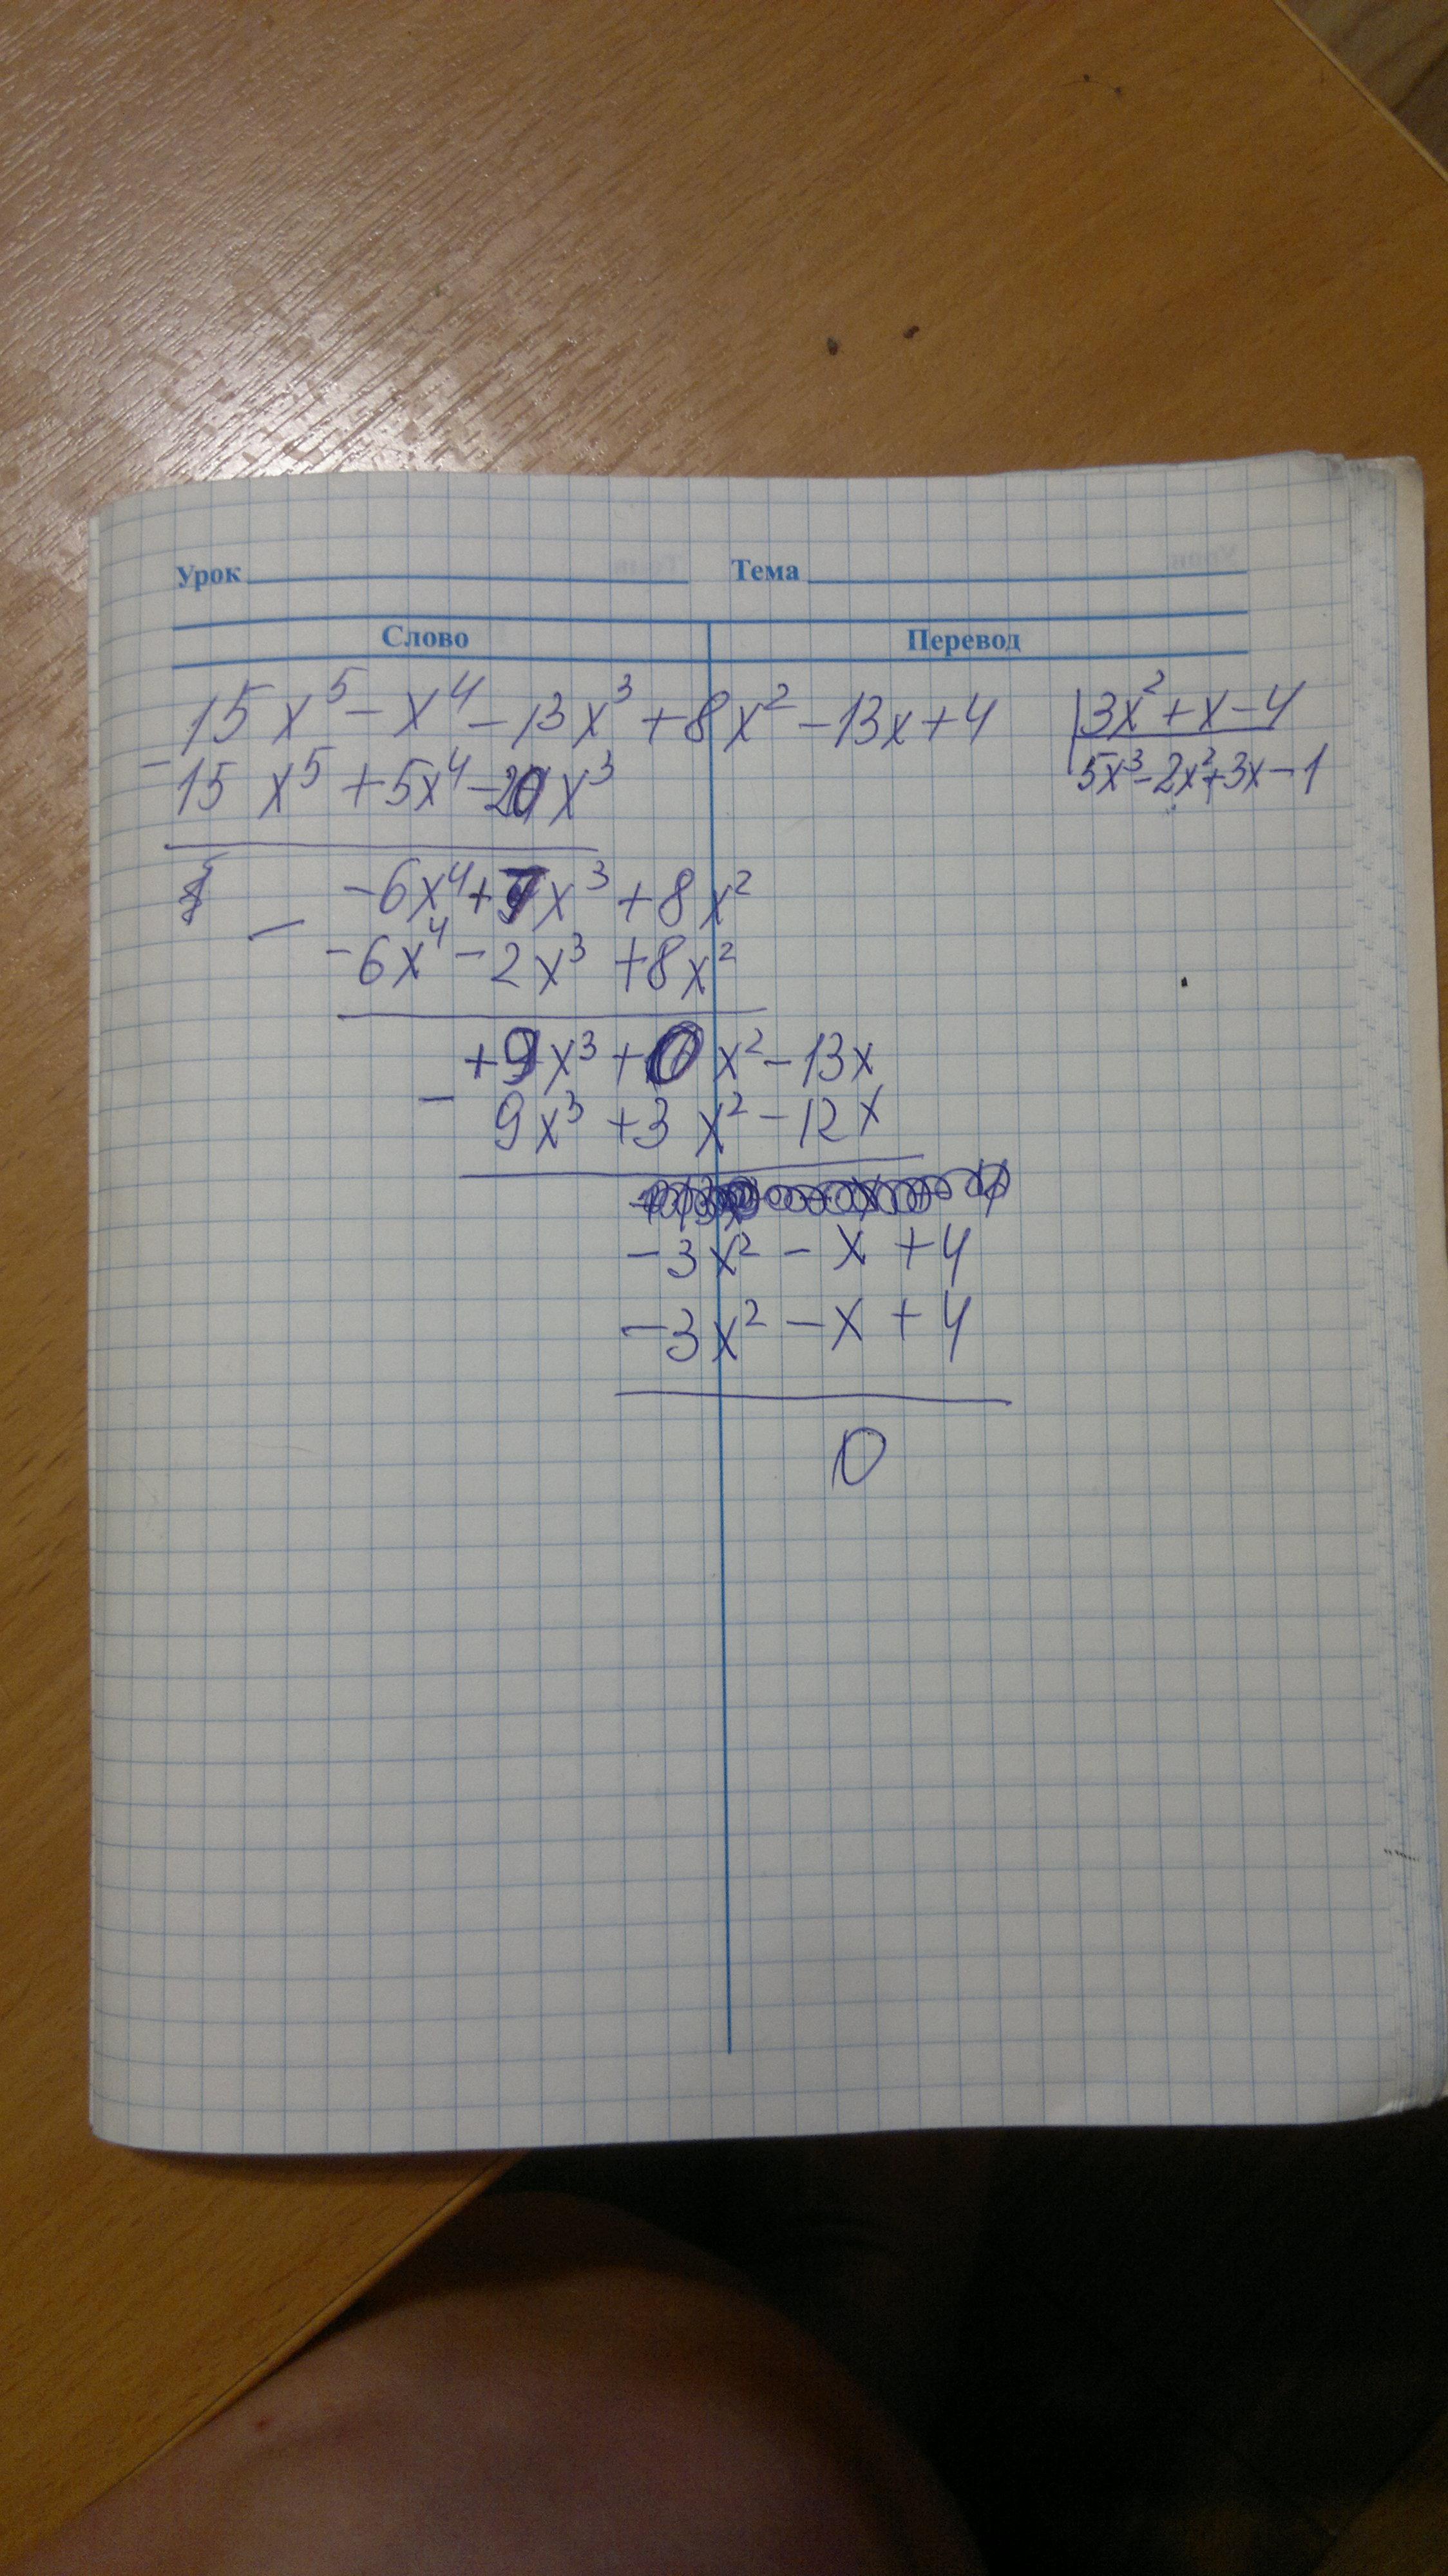 Урок Тема
Слово Перевод
15x⁵ - x⁴ - 13x³ + 8x² - 13x + 4 | 3x² + x - 4
- 15x⁵ + 5x⁴ - 20x³ 5x³ - 2x² + 3x - 1
-6x⁴ + 7x³ + 8x²
- -6x⁴ - 2x³ + 8x²
+9x³ + 0x² - 13x
- 9x³ + 3x² - 12x
-3x² - x + 4
-3x² - x + 4
0